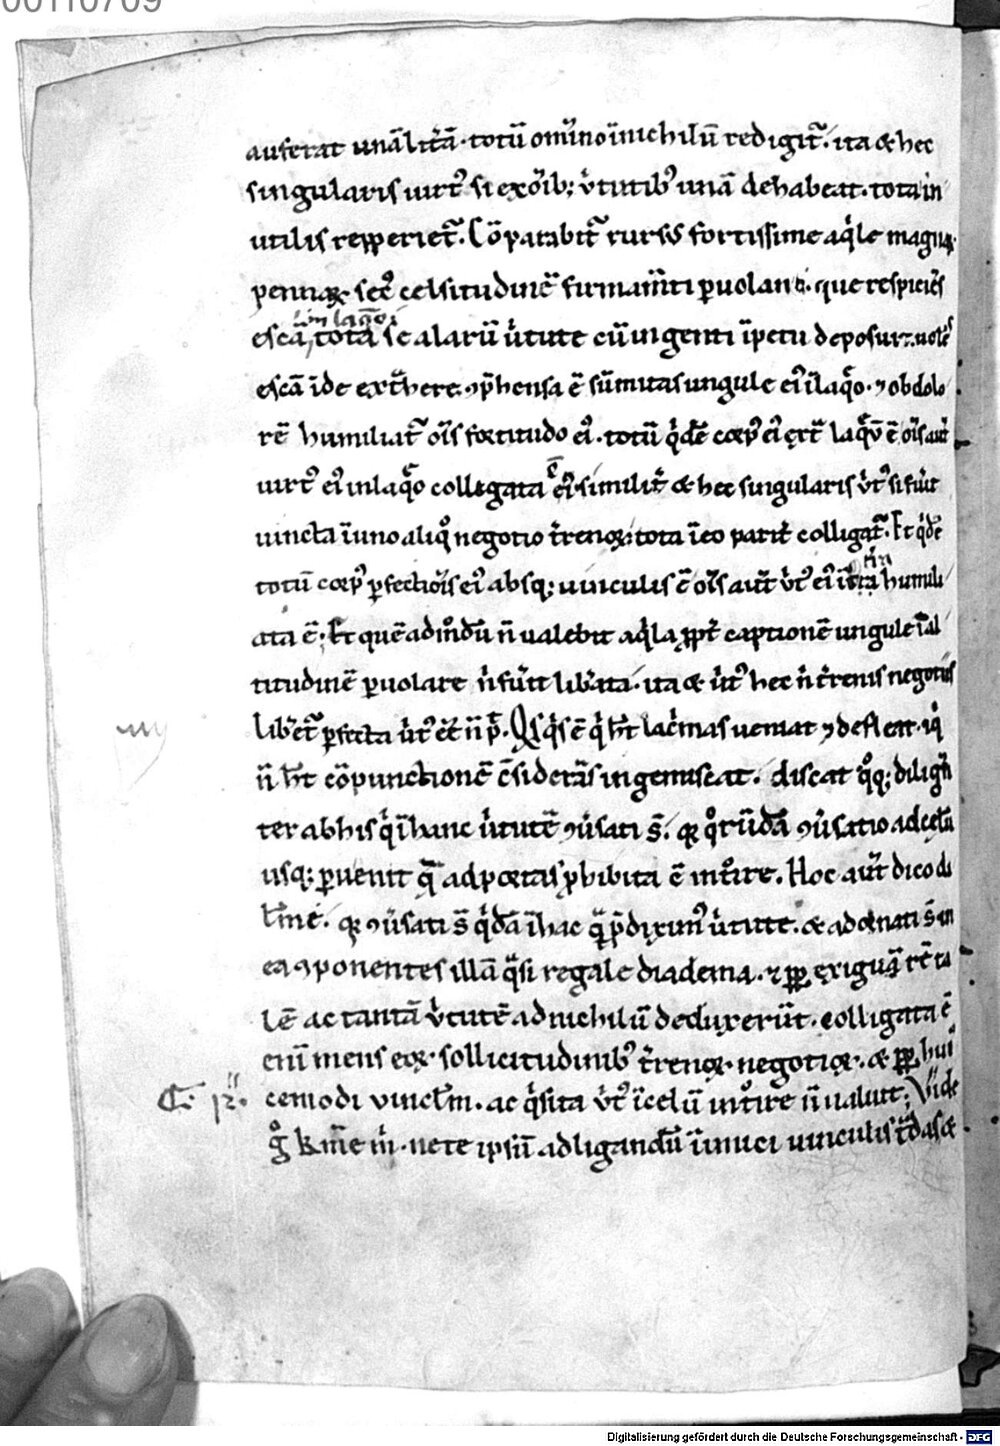 00110709
auferat unā litĕrā. totū omīno ī nichilū redigit̃. ita & hec
singularis uirt᷒ si ex oīb; ṽtutib᷒ unā dehabeat. tota in
utilis repperiet̃. Cōparabit̃ rursus fortissime aq̓le magnaꝝ
pennaꝝ. sec᷒ celsitudinē firmam̃ti puolanti. que respiciēs
escā in laq̄o. tota se alarū ṽtute cū ingenti īpetu deposuit. uolēs
escā īde ext̃here. ꝯp̃hensa ē sūmitas ungule ei᷒ ī laq̄o. ⁊ ob dolo
rē humiliat̃ oīs fortitudo ei᷒. totū q̓dē corp᷒ ei᷒ ext̃ laq̄ū ē. oīs aut̃
uirt᷒ ei᷒ in laq̄o collegata ē ei᷒. similit̃ & hec singularis ṽt᷒ si fũit
uincta ī uno aliq̊ negotio t̃renoꝝ. tota ī eo parit̃ colligat̃. Et q̓dē
totū corp᷒ pfectiōis ei᷒ absq; uinculis ē. oīs aut̃ ṽt᷒ ei᷒ humili
ata ē. Et quēadm̊dū ñ ualebit aq̓la ꝓpt̃ captionē ungule ī al
titudinē puolare ñ fũit lib̃ata. ita & ṽt᷒ hec ñ t̃renis negotiis
libet̃ pfecta ṽt᷒ eē ñ p̄. Qs q̓s ē q̓ h̃t lac̃mas ueniat ⁊ defleat. ⁊ q̓
ñ h̃t cōpunctionē ꝯsiderās ingemiscat. discat q̊q; diligñ
ter ab his q̓ ī hanc ṽtutē ꝯũsati s̃. q̃ q̊rūdā ꝯũsatio ad celū
usq; puenit q̄ ad portas ꝓhibita ē int̊ire. Hoc aut̃ dico di
l̃me. q̃ ꝯũsati s̃ q̓dā ī hac q̃ p̃dixim᷒ ṽtute. & adornati s̃ in
ea ꝯponentes illā q̃si regale diadema. ⁊ ꝓp exiguā rē ta
lē ac tantā ṽtutē ad nichilū deduxerūt. colligata ē
enī mens eoꝝ. sollicitudinib᷒ t̃renoꝝ negotioꝝ. & ꝓp hui᷒
cemodi uincl̃m. ac q̓sita ṽt᷒ ī celū int̊ire ñ ualuit; Vide
g̊ k̃me m̃. ne te ipsū ad ligandū inimici uinculis t̃das &
Digitalisierung gefördert durch die Deutsche Forschungsgemeinschaft - DFG